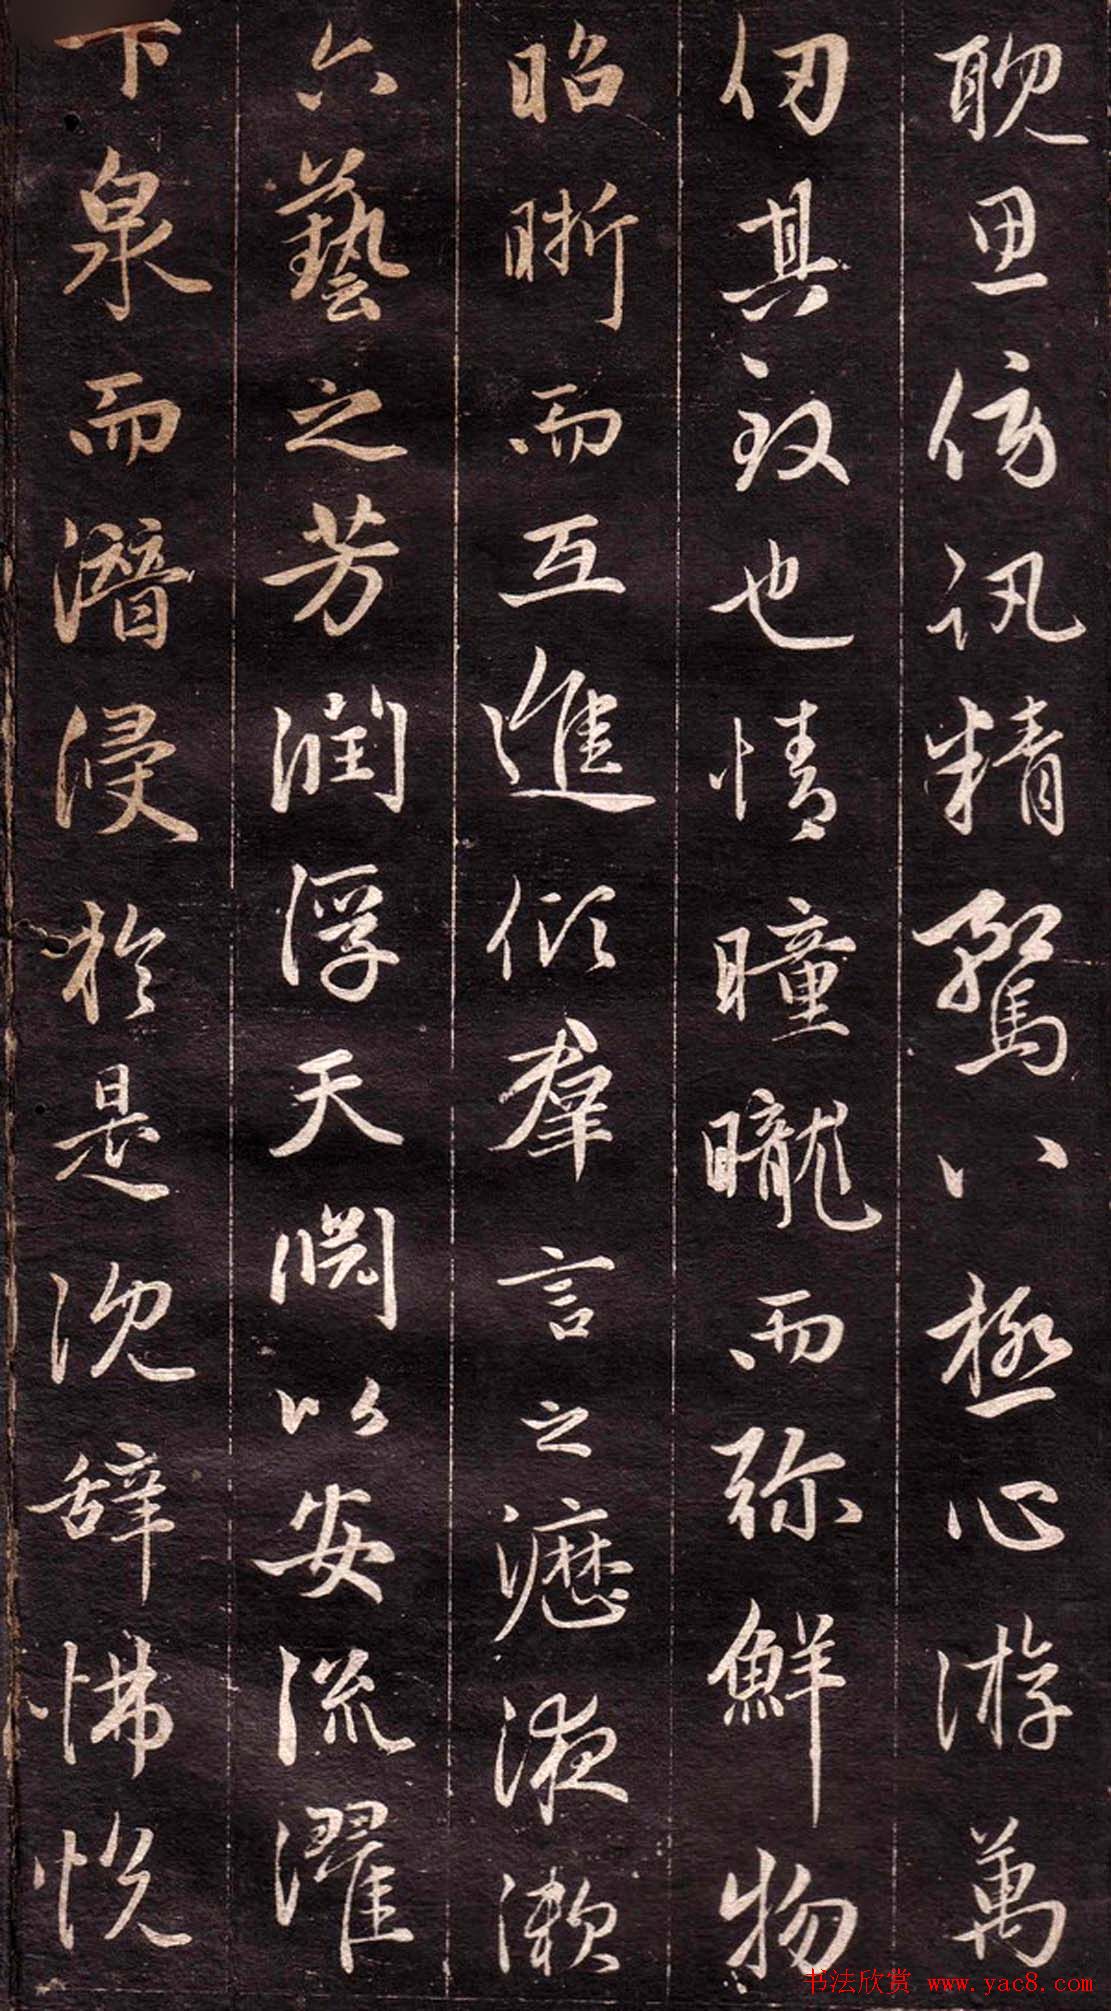 耽思傍訊精騖八極心游萬
仞其致也情曈曨而弥鮮物
昭晣而互進傾羣言之瀝液漱
六藝之芳潤浮天淵以安流濯
下泉而潛浸於是沈辭怫悦
书法欣赏 www.yac8.com